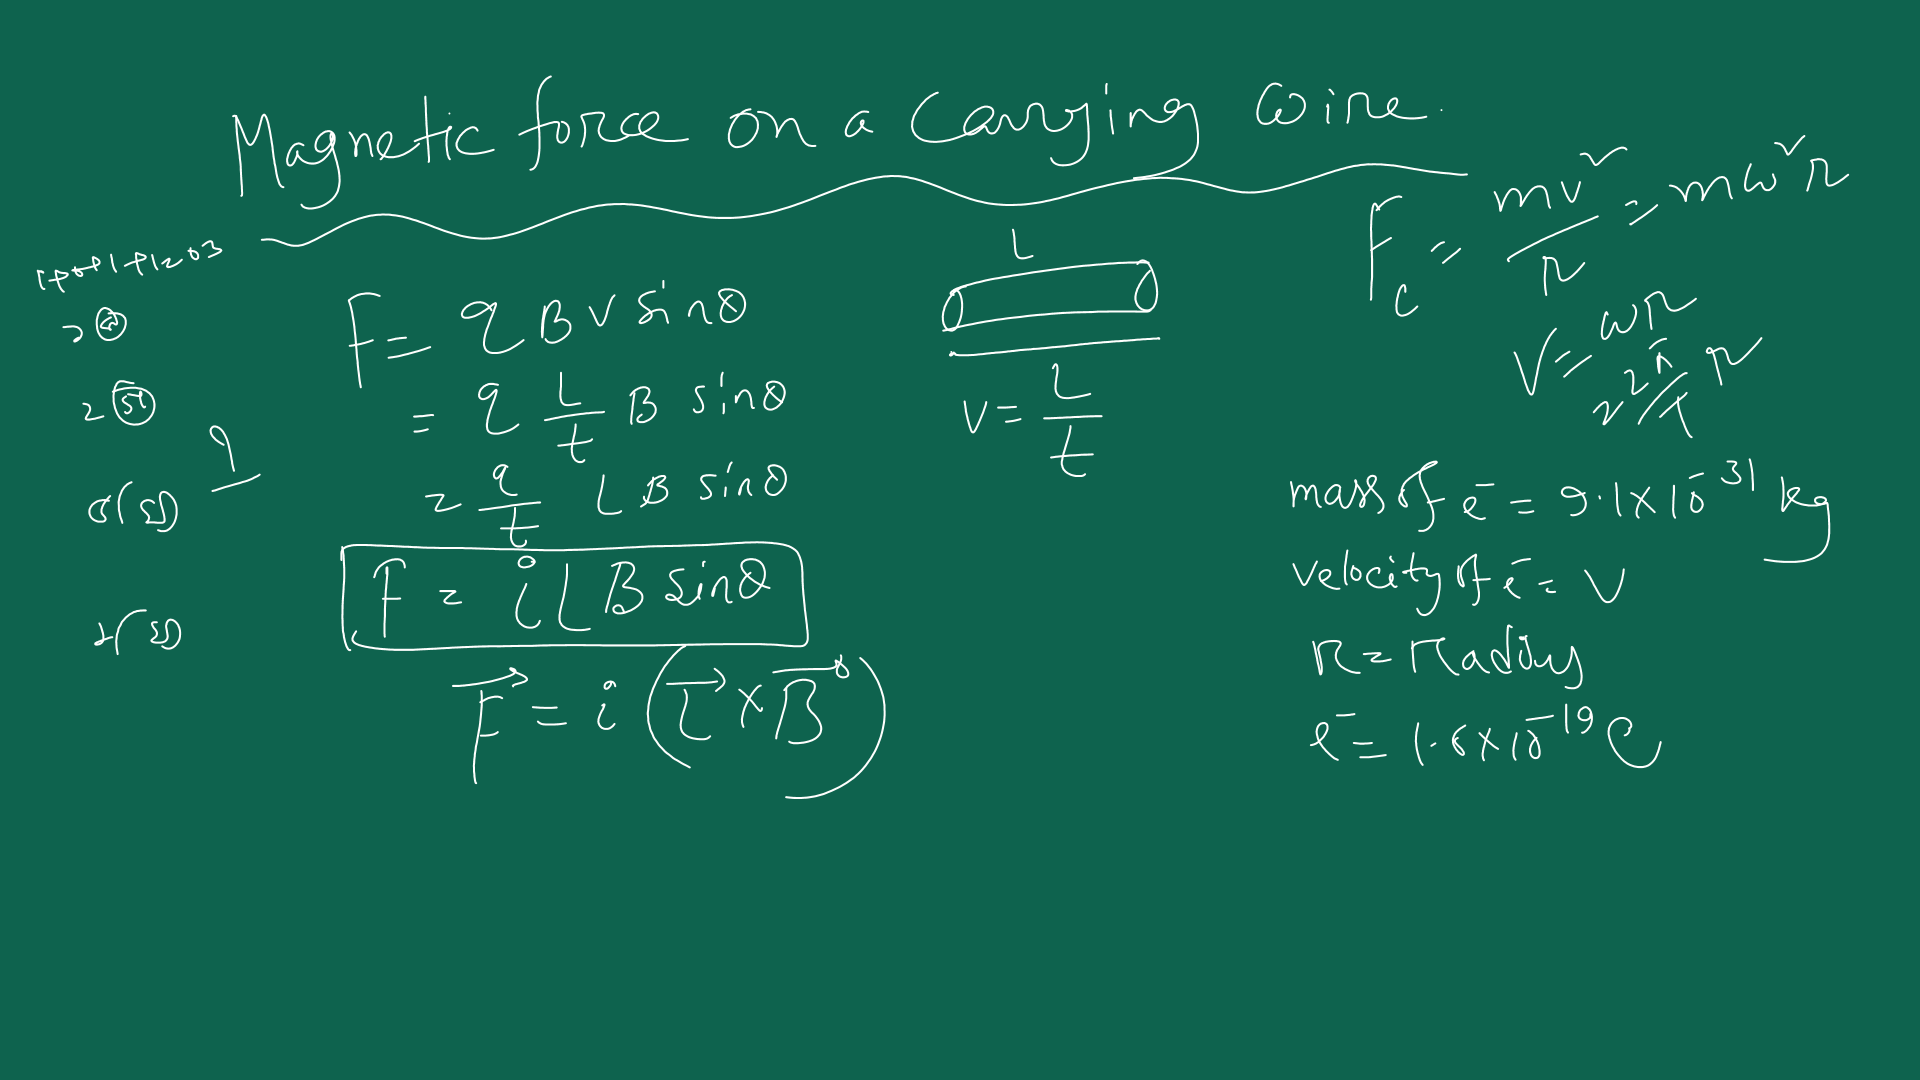 Magnetic force on a Carrying wire.
F = qBVsinθ
= q L/t B sinθ
= q/t LB sinθ
F = iLB sinθ
F⃗ = i (L⃗ × B⃗)
L
V = L/t
Fc = mv²/r = mω²r
V = ωr
= 2π/T r
mass of e⁻ = 9.1×10⁻³¹ kg
velocity of e⁻ = V
r = radius
e⁻ = 1.6×10⁻¹⁹ C